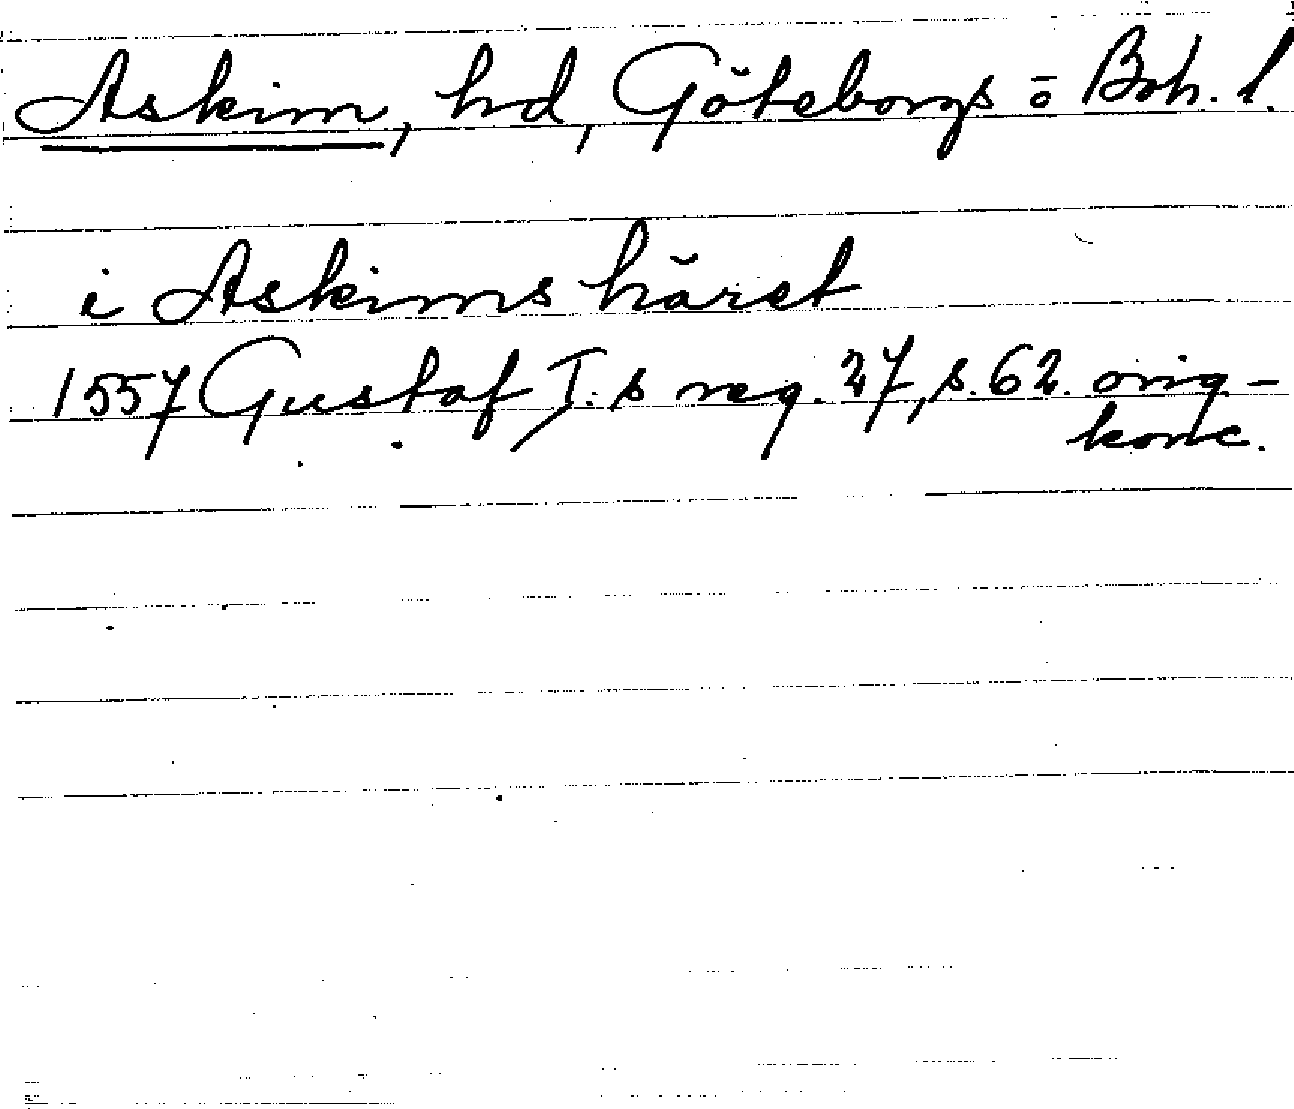 Askim, hd, Göteborgs o Boh. l.
i Askims häret
1557 Gustaf I.s reg. 27, s. 62. orig-
konc.